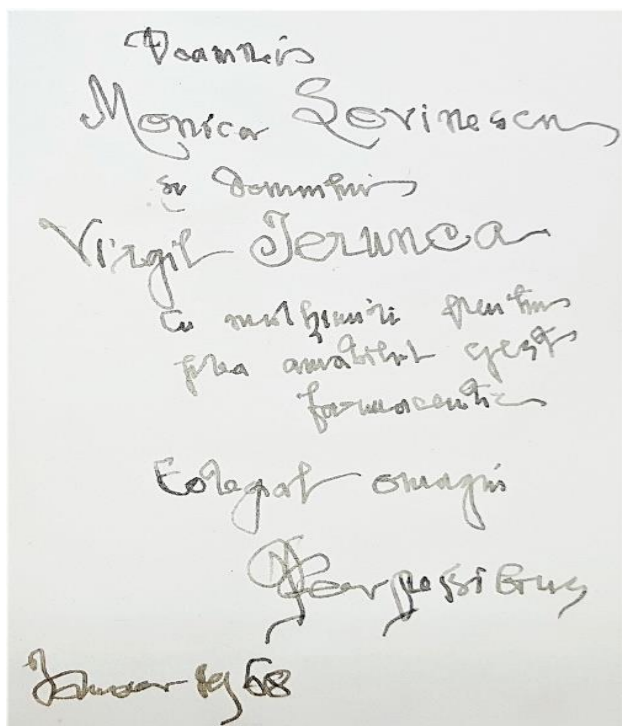 Doamnei
Monica Lovinescu
și Domnului
Virgil Ierunca
cu mulțumiri pentru
prea amabilul gest
farmaceutic
Colegial omagiu
Perpessicius
Ianuar 1968